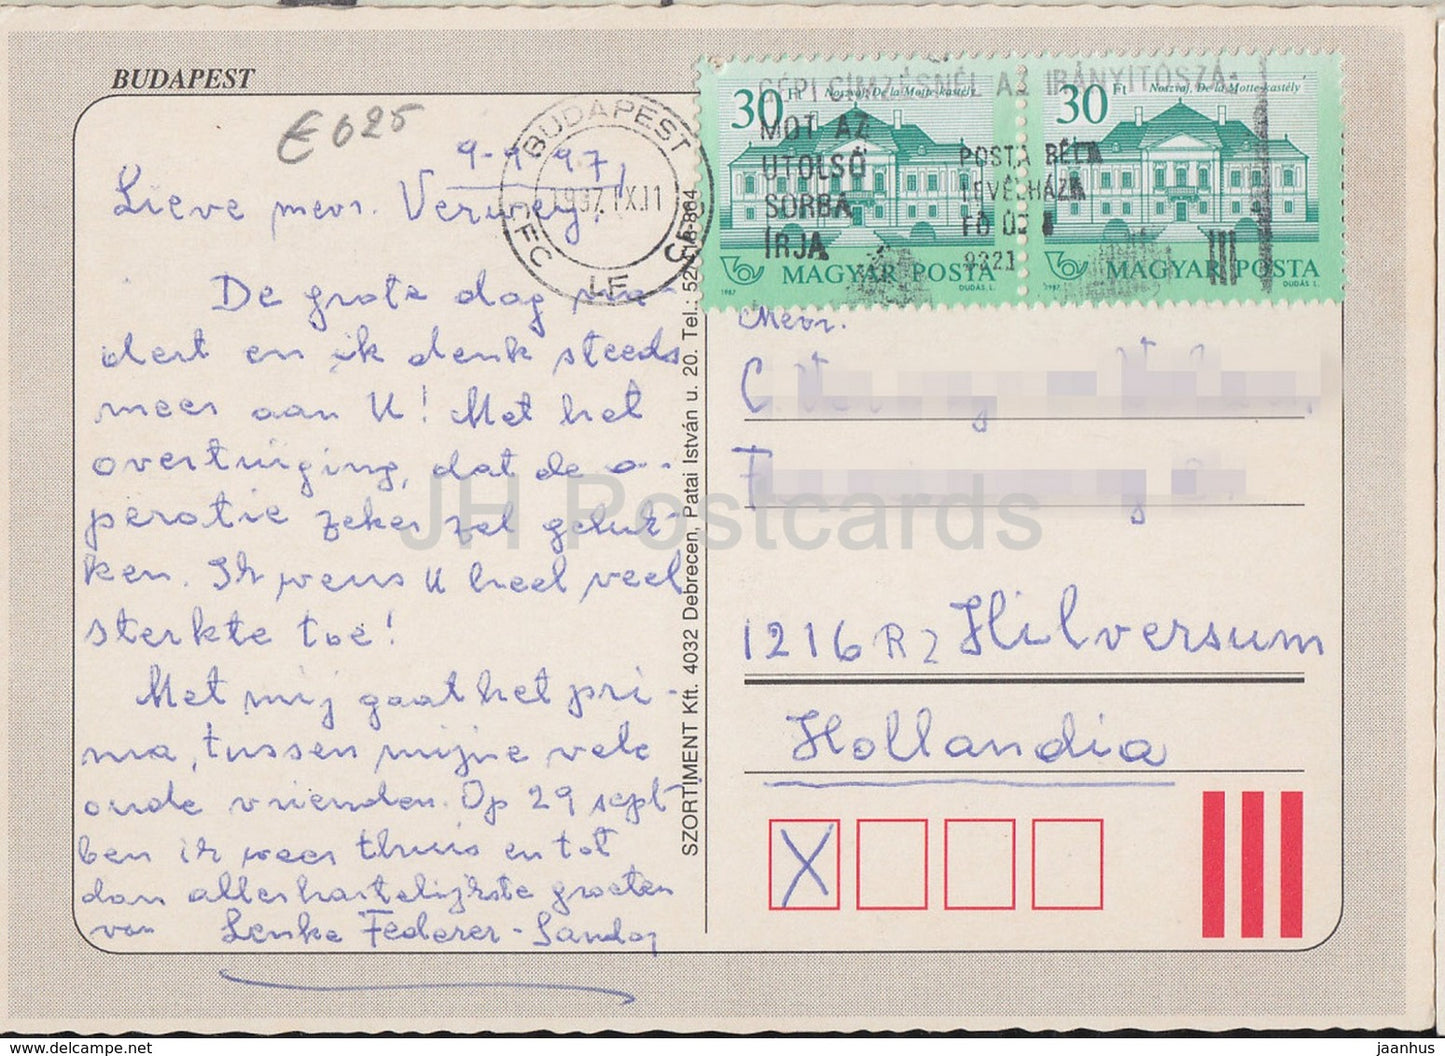 BUDAPEST
€ 025
9-9 97,
Lieve mevr.
De grote dag na-
dert en ik denk steeds
meer aan U! Met het
overtuiging, dat de o-
peratie zeker zal geluk-
ken. Ik wens U heel veel
sterkte toe!
Met mij gaat het pri-
ma, tussen mijne vele
oude vrienden. Op 29 sept
ben ik weer thuis en tot
dan allerhartelijkste groeten
van Lenke Federer-Sandor
SZORTIMENT Kft. 4032 Debrecen, Patai István u. 20. Tel.: 52/
BUDAPEST
1997 IX.11
CFC LF
GÉPI CÍMZÉSNÉL AZ IRÁNYÍTÓSZÁ-
MOT AZ
UTOLSÓ
SORBA
ÍRJA
POSTA BÉLA
LEVÉLHÁZA
FŐ ÚT
9321
30 Ft Noszvaj, De la Motte-kastély
MAGYAR POSTA
1987 DUDÁS L.
30 Ft Noszvaj, De la Motte-kastély
MAGYAR POSTA
1987 DUDÁS L.
Mevr.
C.
1216 RZ Hilversum
Hollandia
X
JH Postcards
www.hippostcard.com
jaanhus